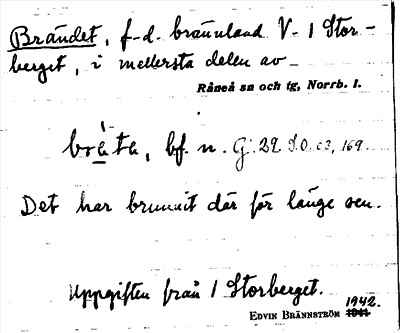 Brändet, f-d. brännland V. 1 Stor-
berget, i mellersta delen av
Råneå sn och tg, Norrb. l.
bräta, bf. n. G. 29
Det har brunnit där för länge sen.
Uppgiften från 1 Storberget.
1942.
EDVIN BRÄNNSTRÖM 1941